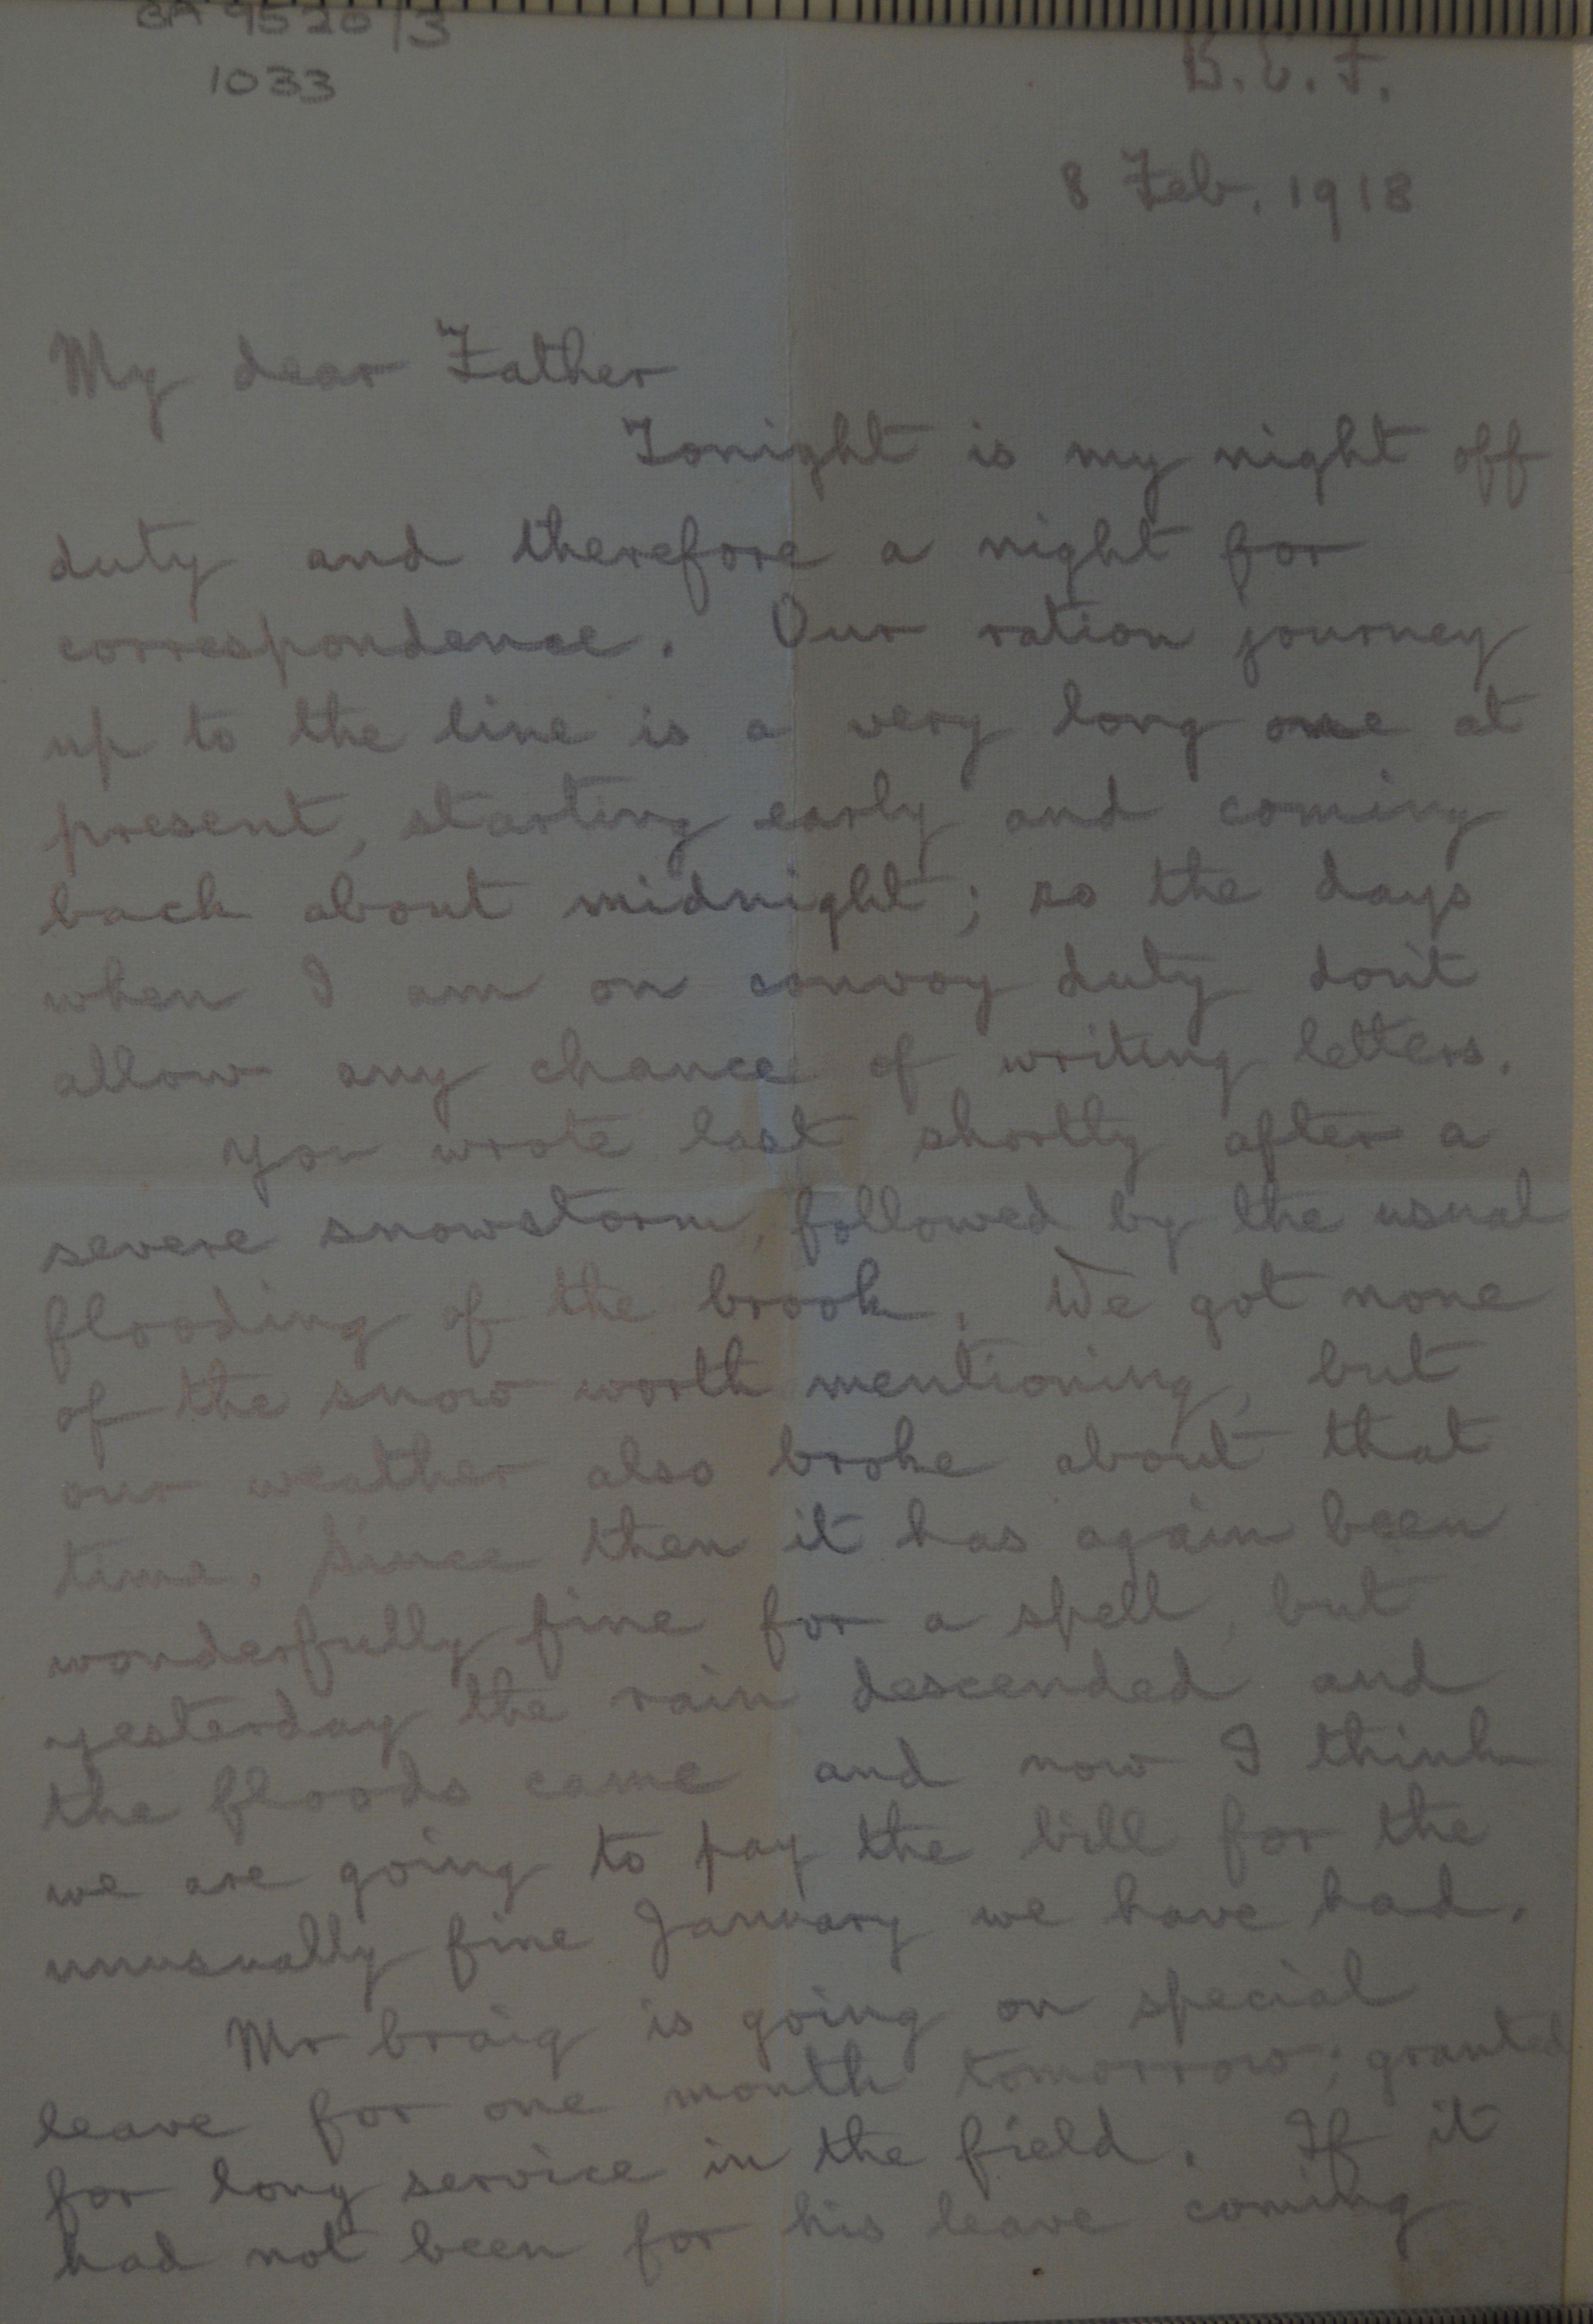 BA 9520/3
1033
B.E.F.
8 Feb. 1918
My dear Father
Tonight is my night off
duty and therefore a night for
correspondence. Our ration journey
up to the line is a very long one at
present, starting early and coming
back about midnight; so the days
when I am on convoy duty don't
allow any chance of writing letters.
You wrote last shortly after a
severe snowstorm, followed by the usual
flooding of the brook. We got none
of the snow worth mentioning, but
our weather also broke about that
time. Since then it has again been
wonderfully fine for a spell, but
yesterday the rain descended and
the floods came and now I think
we are going to pay the bill for the
unusually fine January we have had.
Mr Craig is going on special
leave for one month tomorrow; granted
for long service in the field. If it
had not been for his leave coming